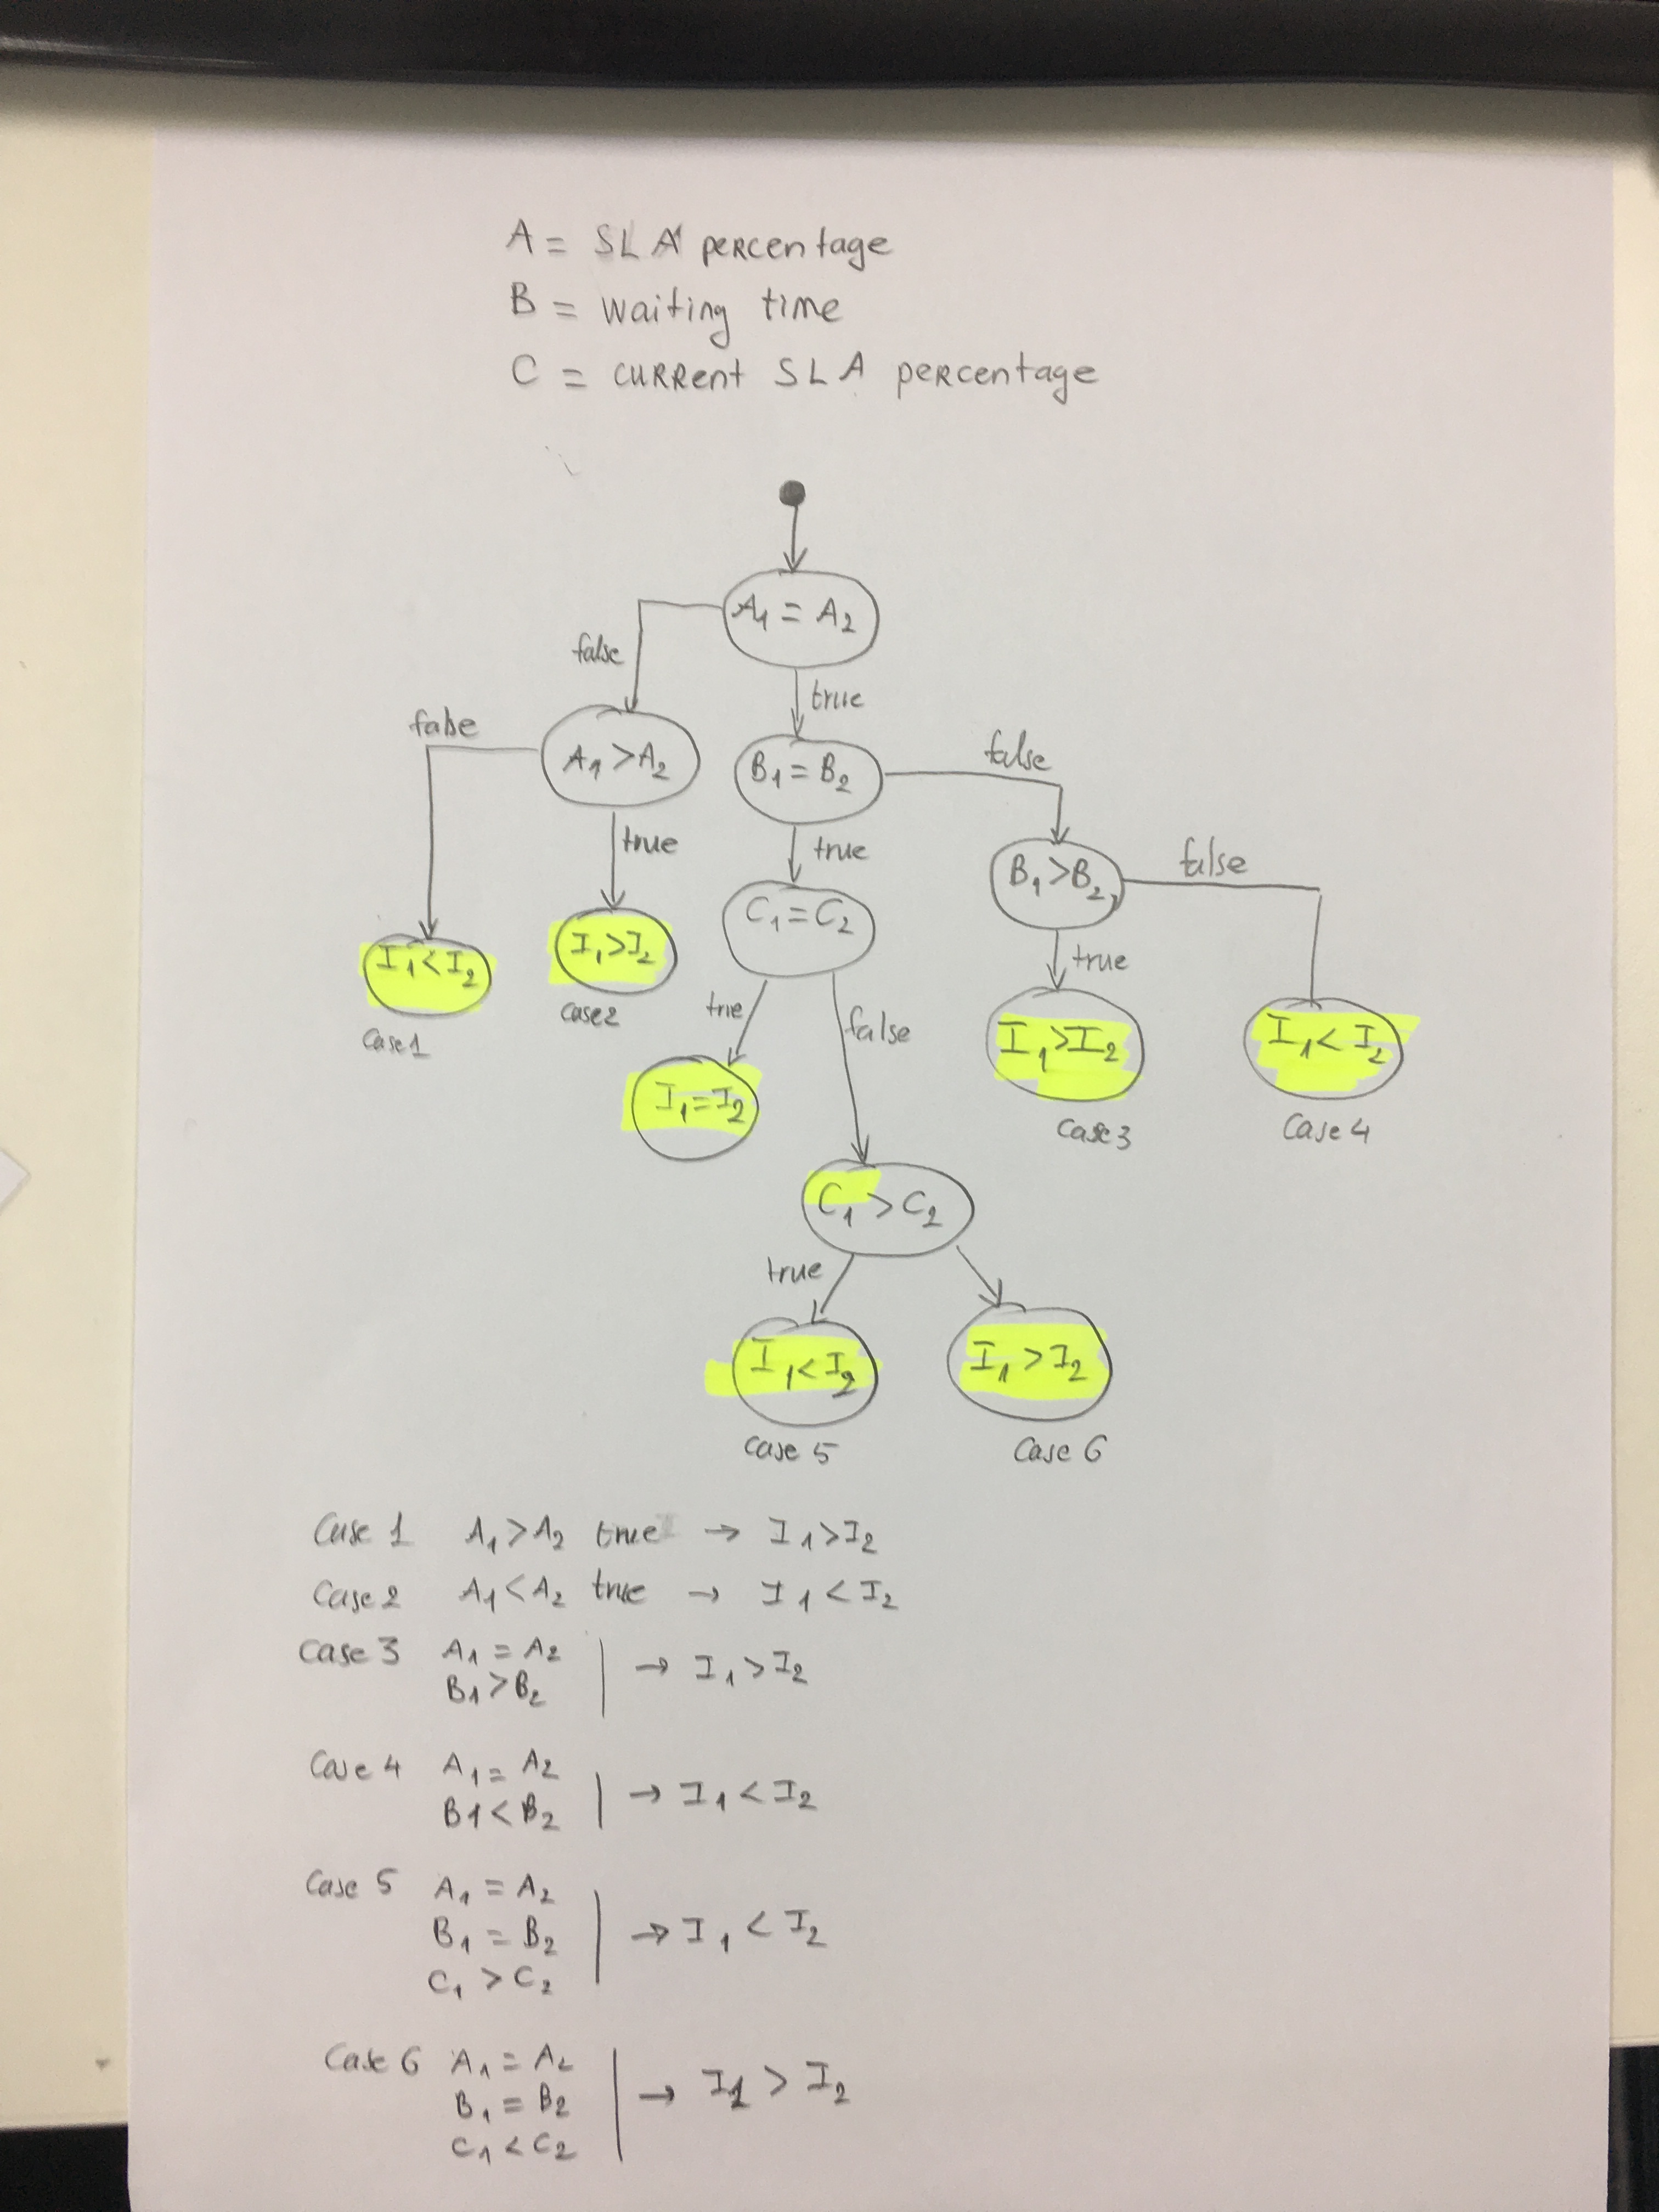 A = SLA percentage
B = waiting time
C = current SLA percentage
A1 = A2
false
true
false
A1 > A2
B1 = B2
false
true
true
B1 > B2
false
C1 = C2
I1 < I2
I1 > I2
true
case 1
case 2
true
false
I1 > I2
I1 < I2
I1 = I2
case 3
case 4
C1 > C2
true
I1 < I2
I1 > I2
case 5
case 6
Case 1 A1 > A2 true → I1 > I2
Case 2 A1 < A2 true → I1 < I2
Case 3 A1 = A2
B1 > B2 | → I1 > I2
Case 4 A1 = A2
B1 < B2 | → I1 < I2
Case 5 A1 = A2
B1 = B2 | → I1 < I2
C1 > C2
Case 6 A1 = A2
B1 = B2 | → I1 > I2
C1 < C2